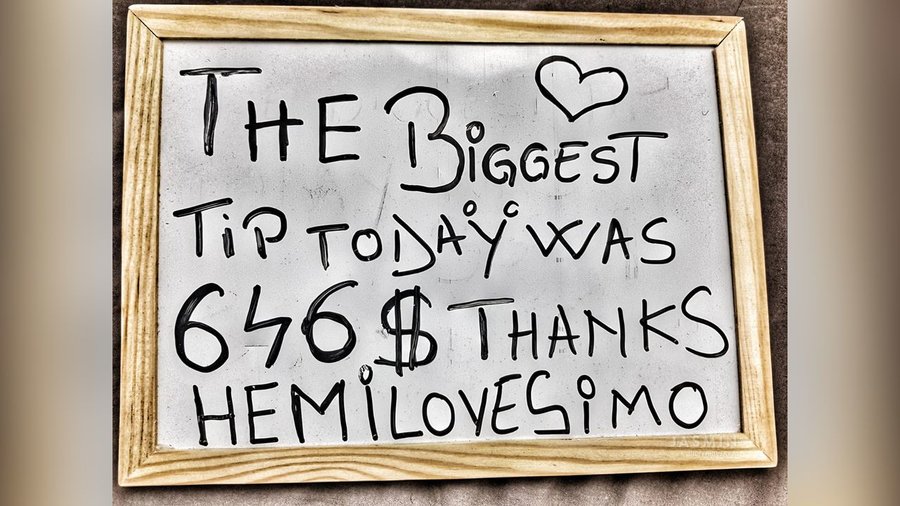 THE BiGGEST
TiP TODAŸ WAS
646$ THANKS
HEMiLOVESiMO